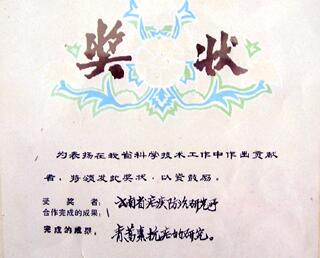 奖状
为表扬在我省科学技术工作中作出贡献
者，特颁发此奖状，以资鼓励。
受奖者：云南省疟疾防治研究所
合作完成的成果：
完成的成果：青蒿素抗疟的研究。